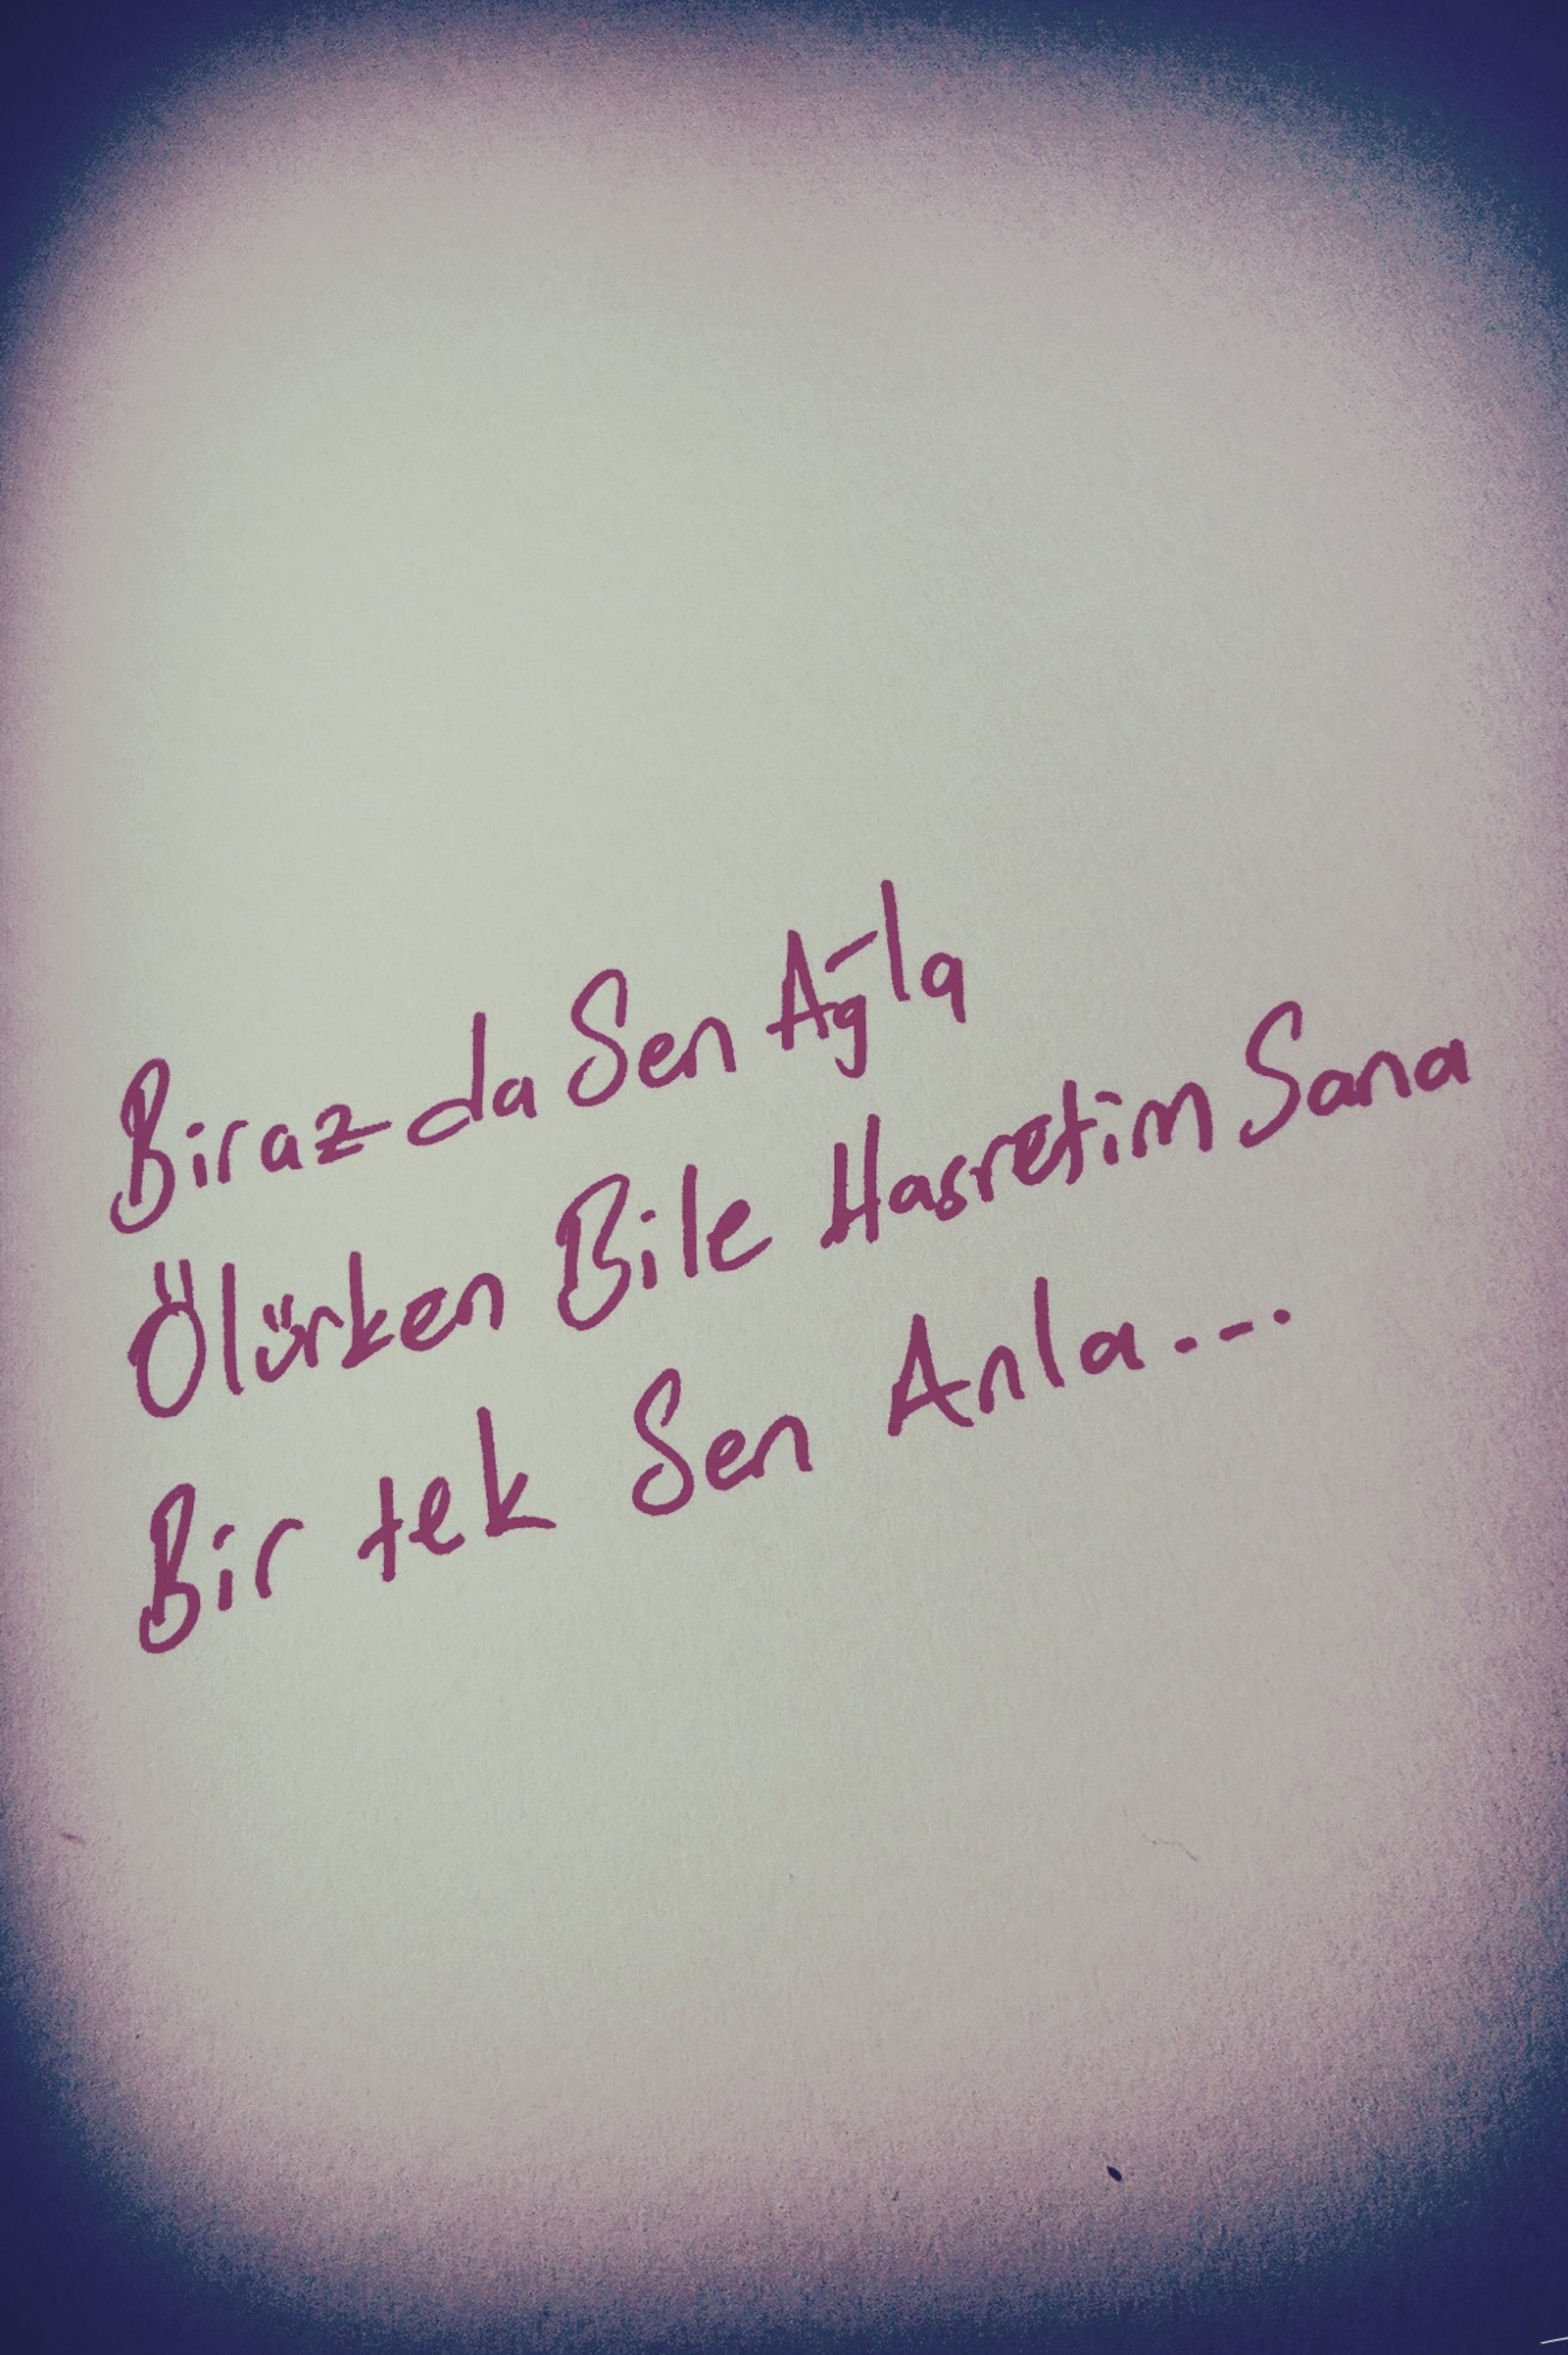 Biraz da Sen Ağla
Ölürken Bile Hasretim Sana
Bir tek Sen Anla...